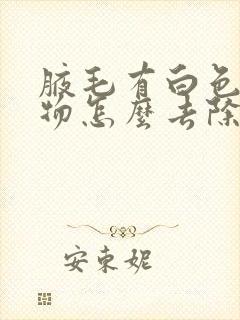 腋毛有白色
物怎麼去除
安東妮